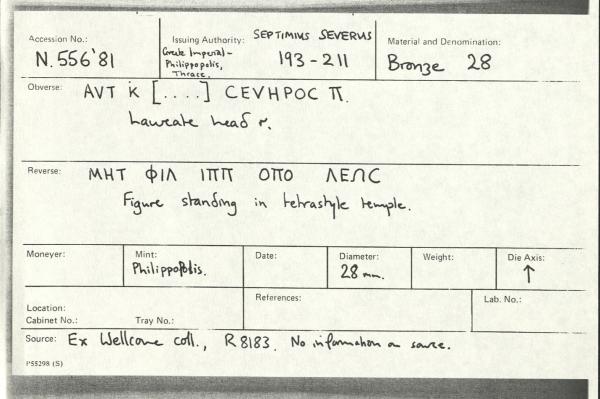 Accession No.:
N.556'81
Issuing Authority: SEPTIMIUS SEVERUS
Greek Imperial-
Philippopolis,
Thrace.
193-211
Material and Denomination:
Bronze 28
Obverse: ΑVΤ Κ [....] CEVHPOC Π.
Laureate head r.
Reverse: ΜΗΤ ΦΙΛ ΙΠΠ ΟΠΟ ΛΕΩC
Figure standing in tetrastyle temple.
Moneyer:
Mint:
Philippopolis.
Date:
Diameter:
28 mm.
Weight:
Die Axis:
↑
Location:
Cabinet No.: Tray No.:
References:
Lab. No.:
Source: Ex Wellcome coll., R 8183. No information on source.
P55298 (S)